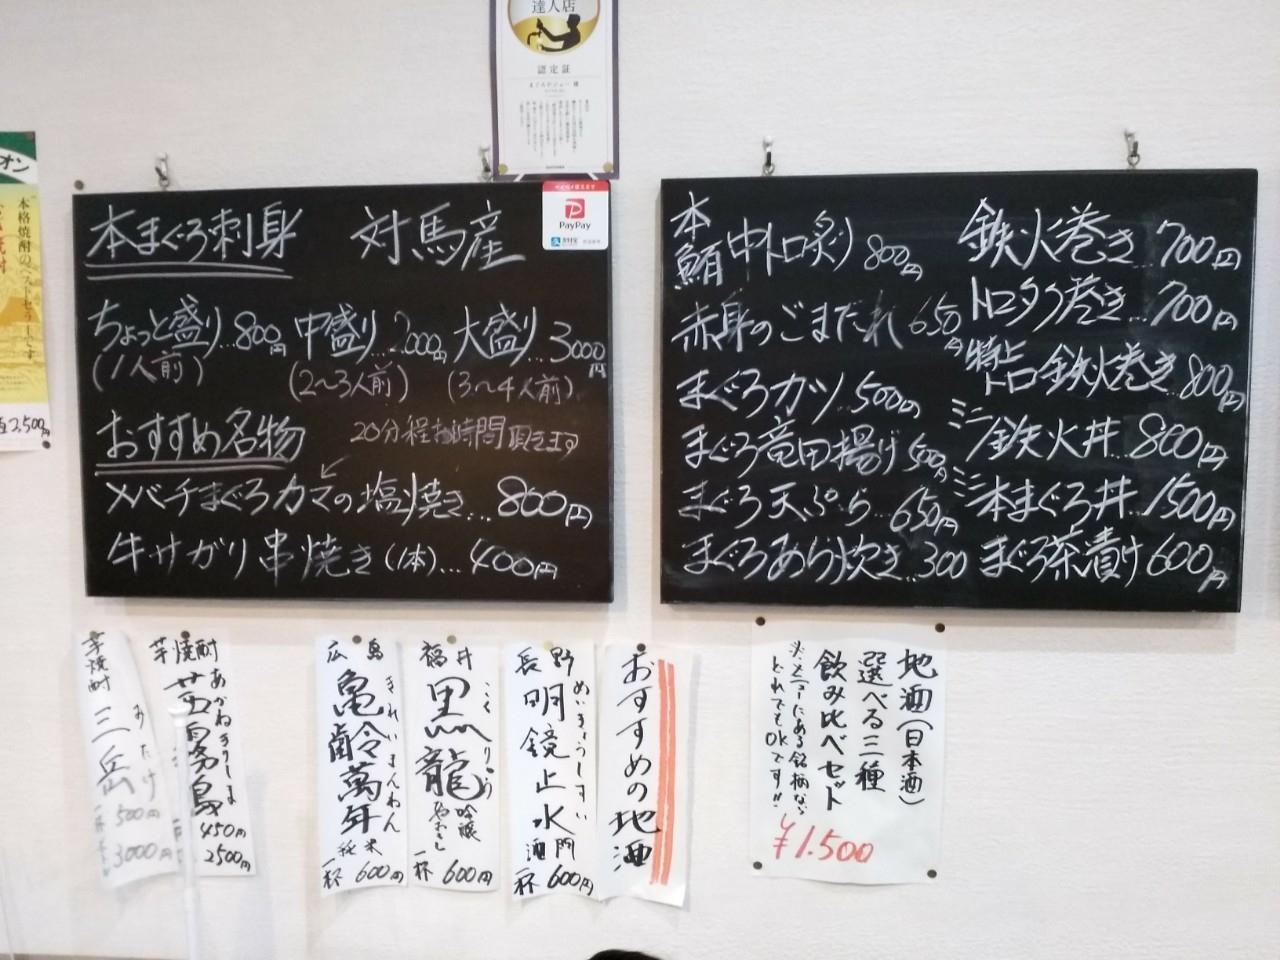 達人店
認定証
オン
本格焼酎のベストセラーです
2,500円
本まぐろ刺身 対馬産
PayPay
ちょっと盛り…800円 中盛り…2000円 大盛り…3000円
(1人前) (2〜3人前) (3〜4人前)
おすすめ名物 20分程お時間頂きます
メバチまぐろカマの塩焼き…800円
牛サガリ串焼き(1本)…400円
本鮪(中トロ炙) 800円
赤身のごまだれ 650円
まぐろカツ 500円
まぐろ竜田揚げ 500円
まぐろ天ぷら…650円
まぐろあら炊き…300
鉄火巻き…700円
トロタク巻き…700円
特上トロ鉄火巻き…800円
ミニ鉄火丼…800円
ミニ本まぐろ丼…1500円
まぐろ茶漬け600円
芋焼酎
三岳
みたけ
一杯 500円
3000円
芋焼酎
茜霧島
あかねきりしま
450円
2500円
広島
亀齢萬年
きれいまんねん
純米
一杯 600円
福井
黒龍
こくりゅう
吟醸
一杯 600円
長野
明鏡止水
めいきょうしすい
一杯 600円
おすすめの地酒
地酒(日本酒)
選べる三種
飲み比べセット
※メニューにある銘柄なら
どれでもOKです!!
¥1.500